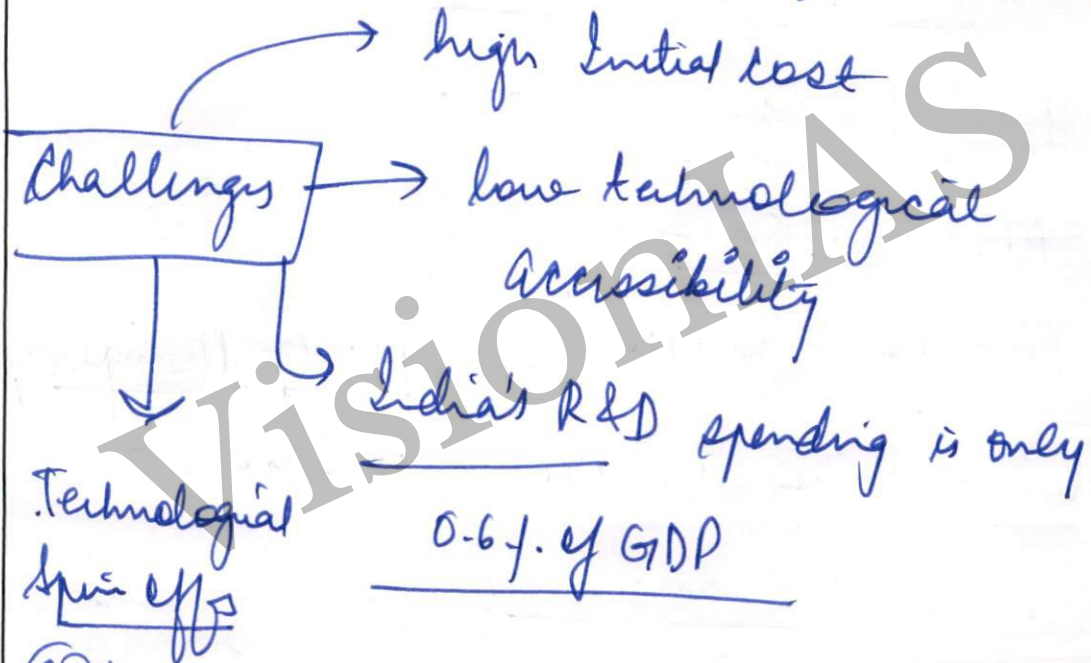 high Initial cost
Challenges
low technological
accessibility
India's R&D spending is only
0.6% of GDP
Technological
Spin offs
VisionIAS